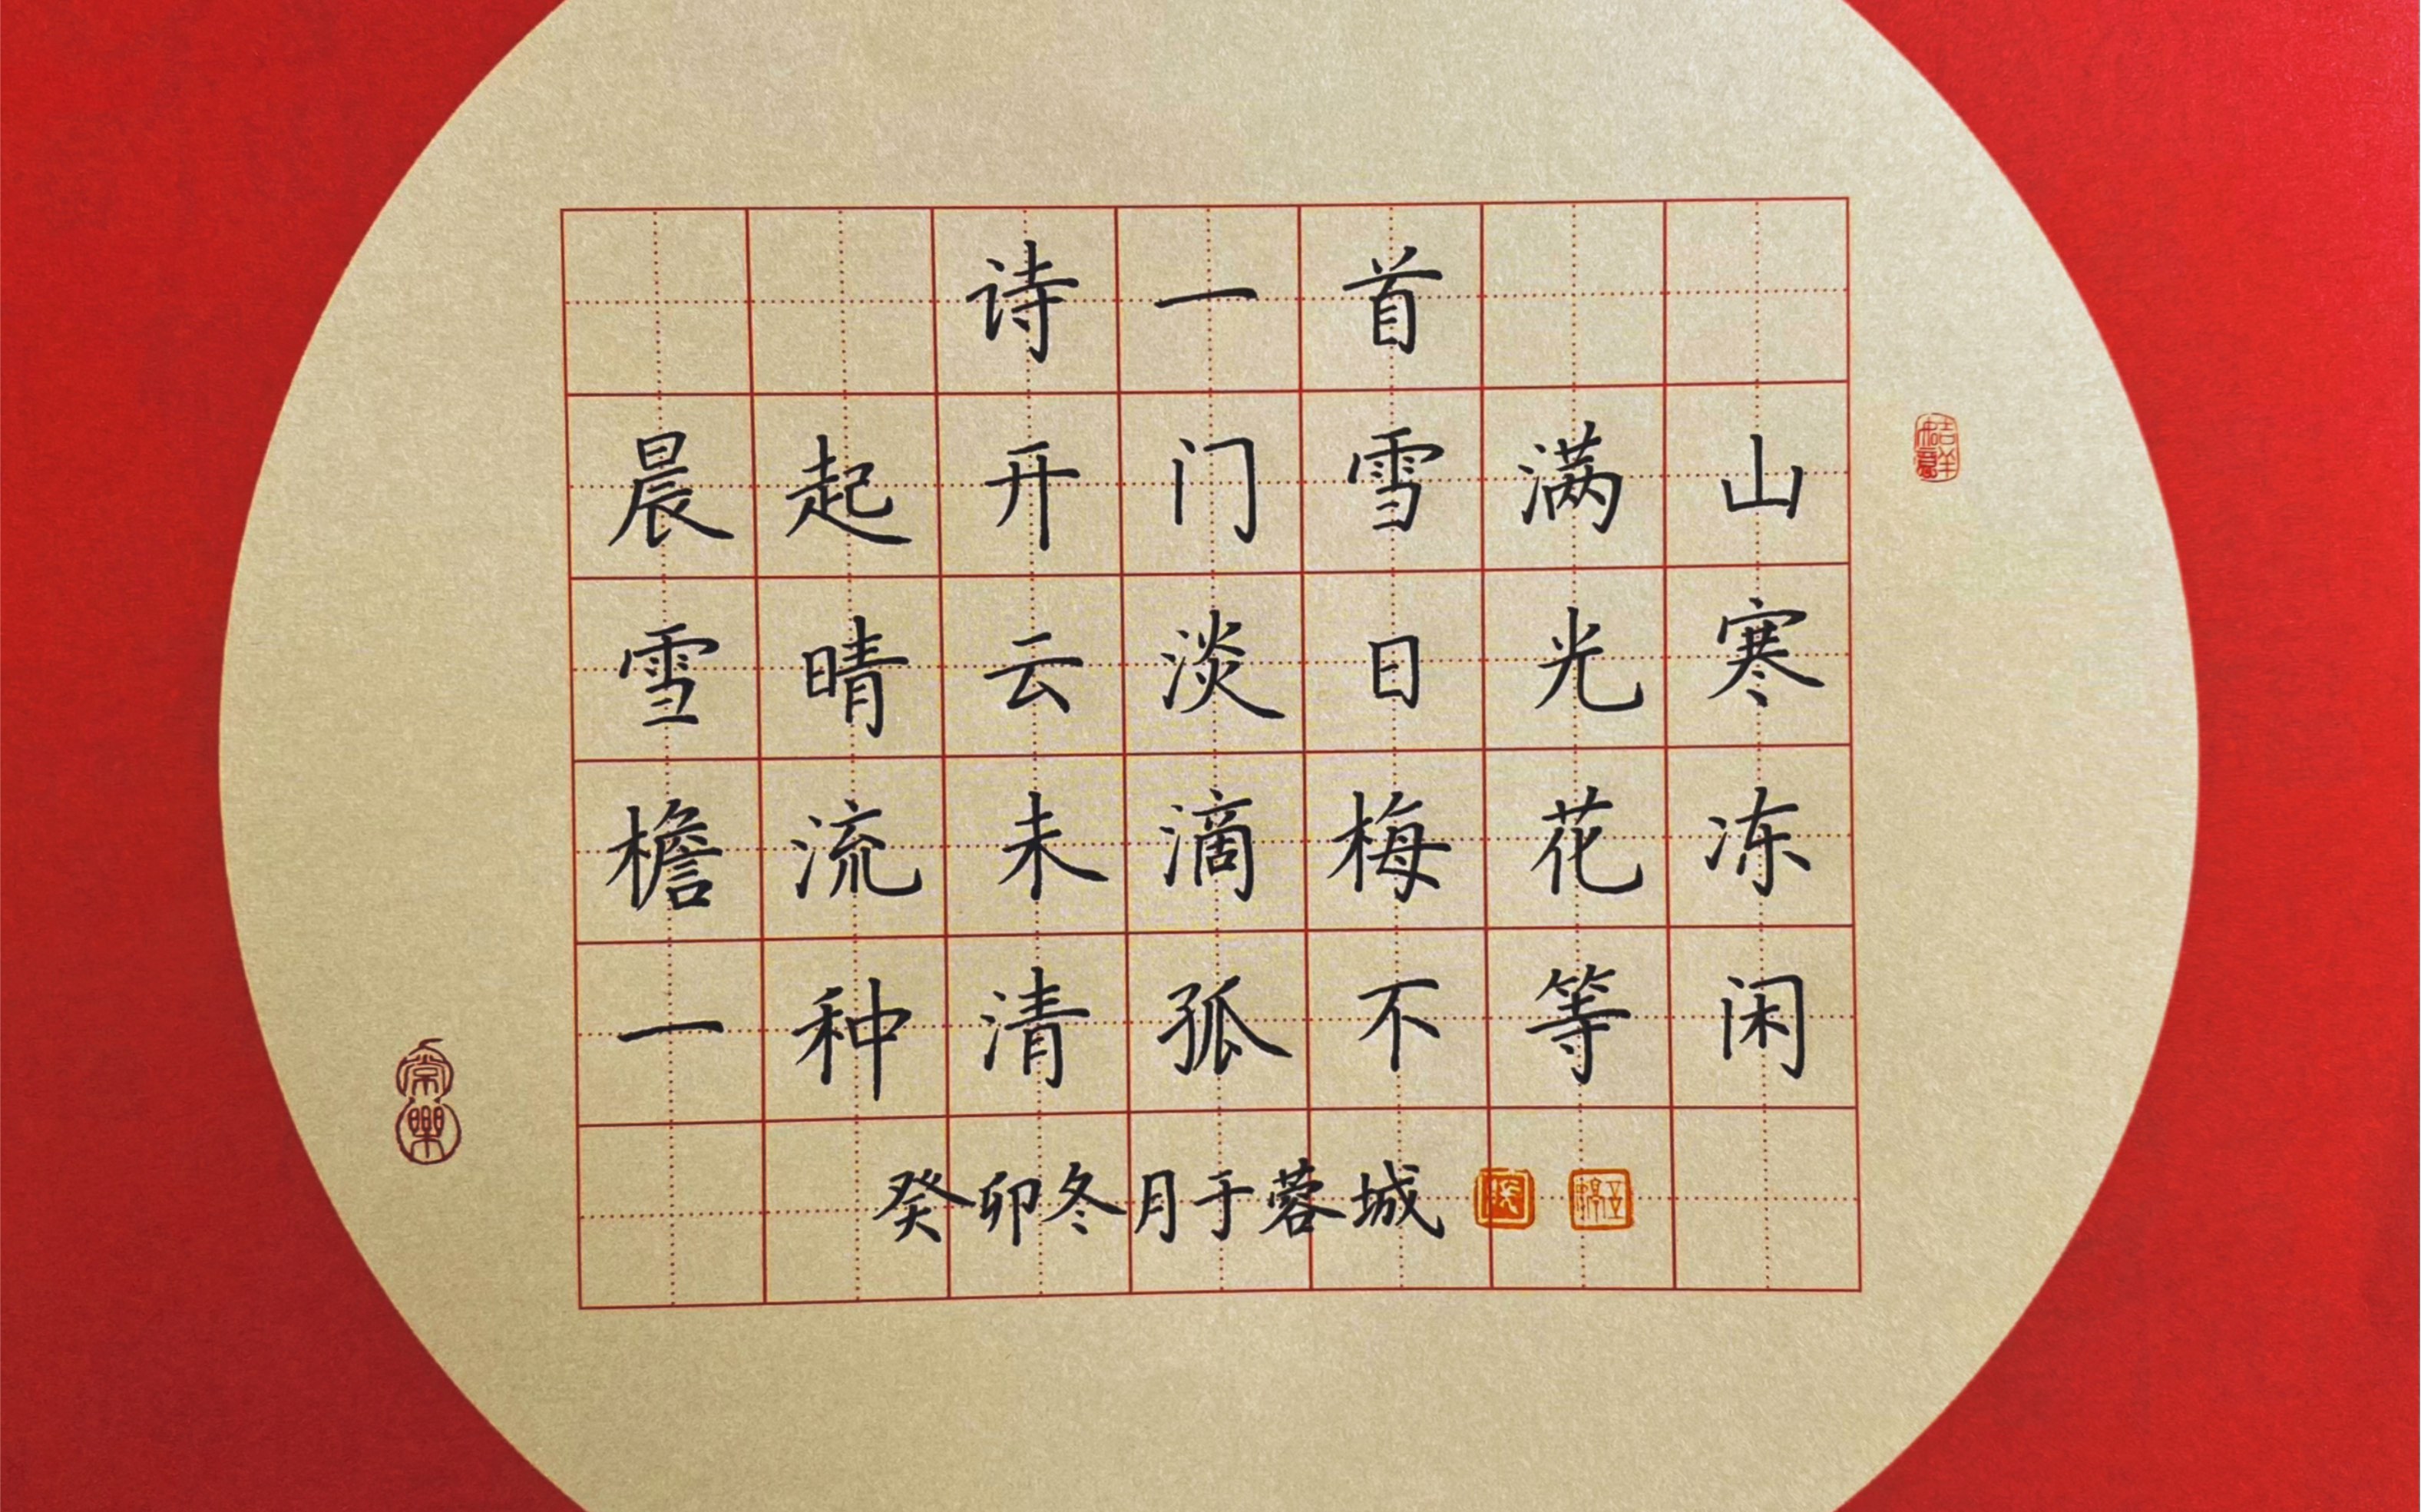 诗一首
晨起开门雪满山
雪晴云淡日光寒
檐流未滴梅花冻
一种清孤不等闲
癸卯冬月于蓉城
吉祥如意
常樂